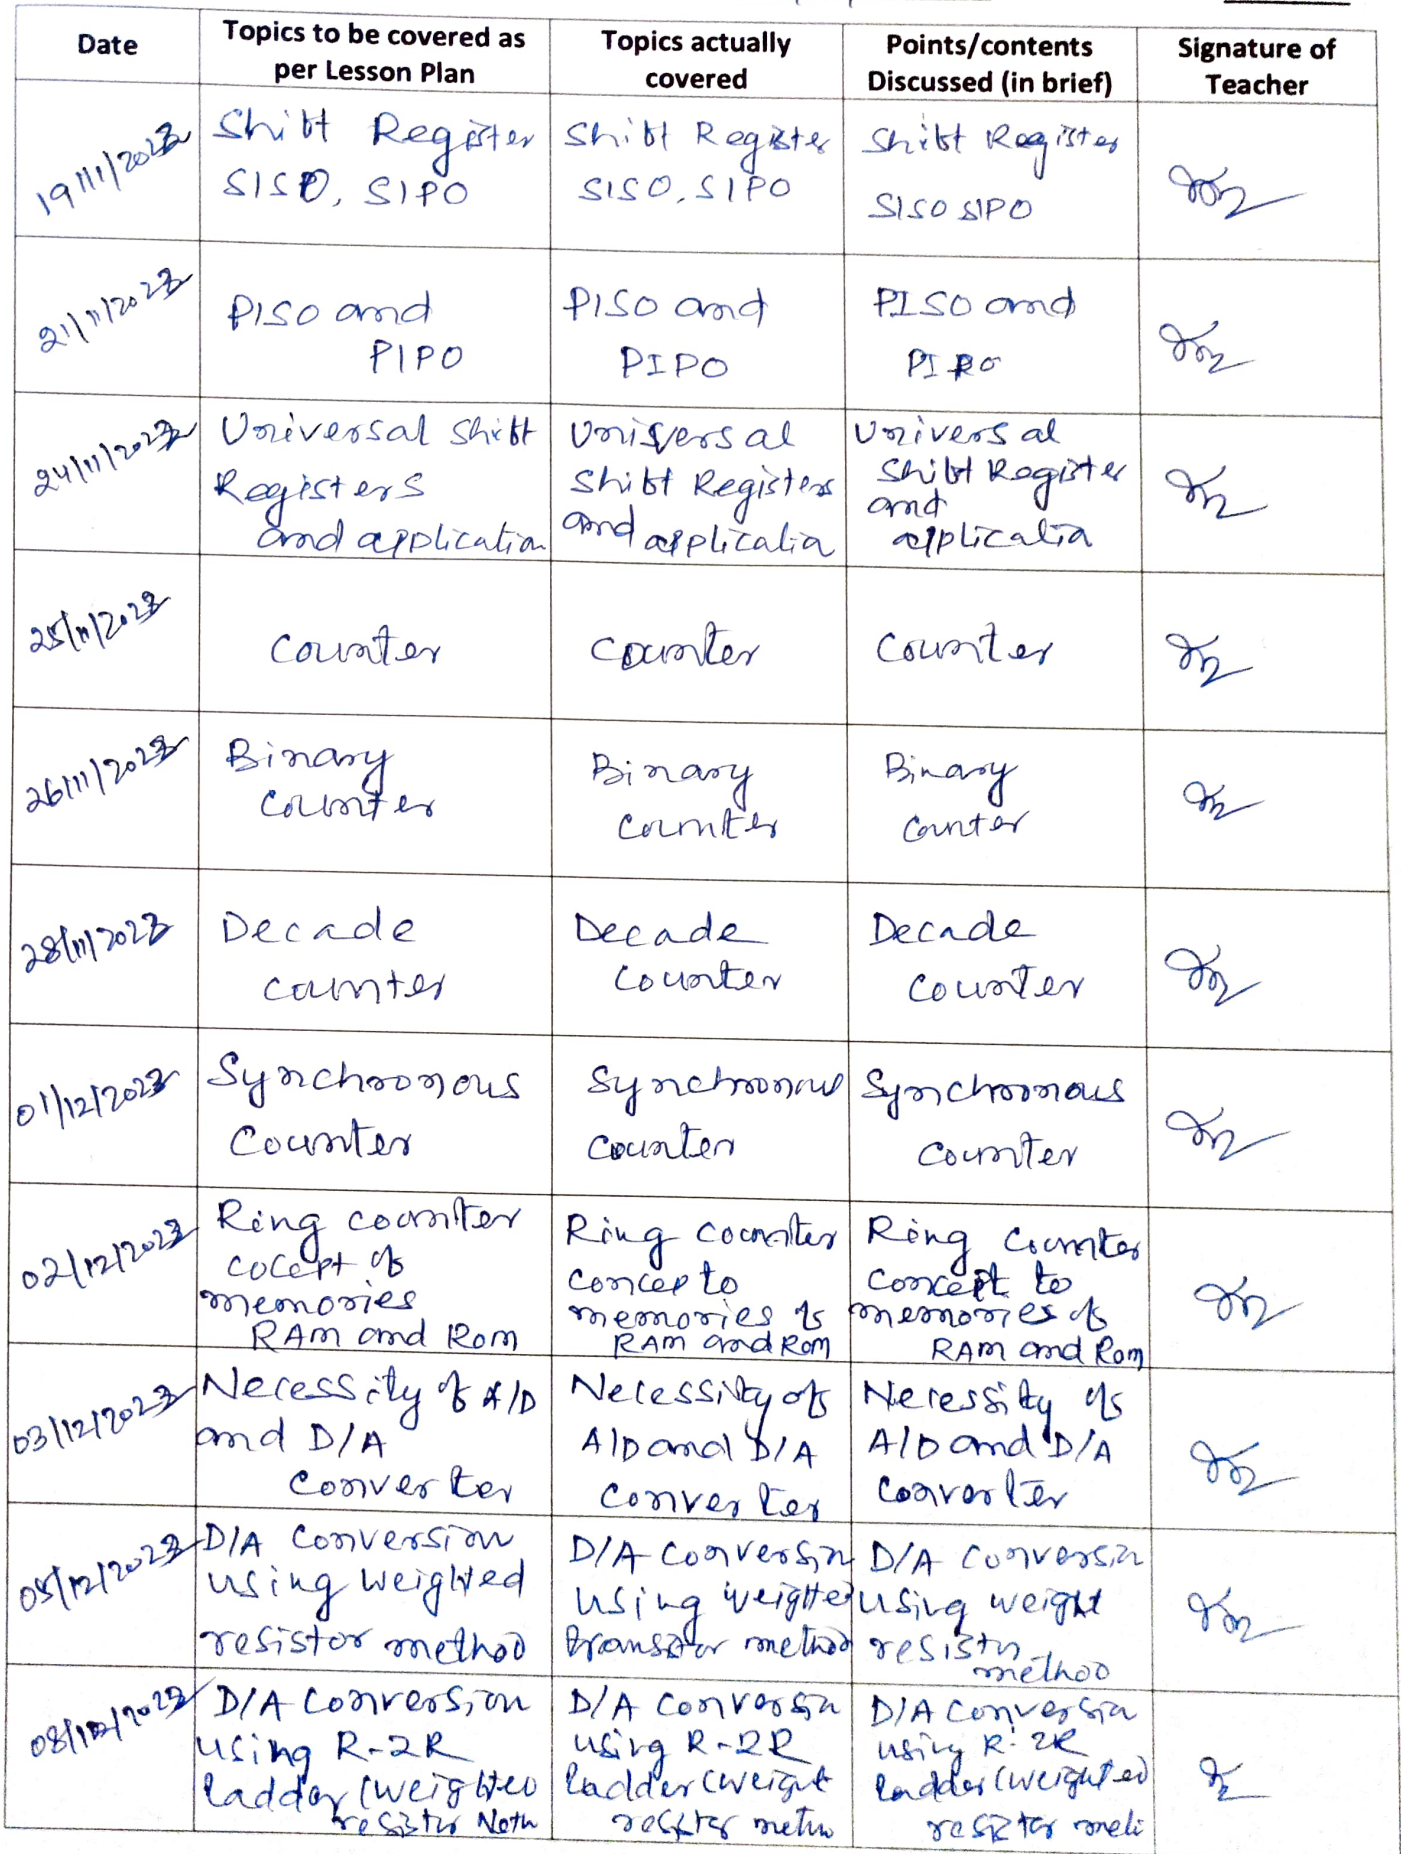 Date
Topics to be covered as
per Lesson Plan
Topics actually
covered
Points/contents
Discussed (in brief)
Signature of
Teacher
19/11/2023
Shift Register
SISO, SIPO
Shift Register
SISO, SIPO
Shift Register
SISO SIPO
21/11/2023
PISO and
PIPO
PISO and
PIPO
PISO and
PIPO
24/11/2023
Universal Shift
Registers
and application
Universal
Shift Registers
and applicatia
Universal
Shift Register
and
applicatia
25/11/2023
Counter
Counter
Counter
26/11/2023
Binary
Counter
Binary
Counter
Binary
Counter
28/11/2023
Decade
Counter
Decade
Counter
Decade
Counter
01/12/2023
Synchronous
Counter
Synchronous
Counter
Synchronous
Counter
02/12/2023
Ring counter
cocept of
memories
RAM and ROM
Ring Counter
concep to
memories of
RAM and ROM
Ring Counter
concept to
memories of
RAM and ROM
03/12/2023
Necessity of A/D
and D/A
Converter
Necessity of
A/D and D/A
Converter
Necessity of
A/D and D/A
Converter
05/12/2023
D/A Conversion
using weighted
resistor method
D/A Conversin
using weighted
transistor method
D/A Conversin
using weight
resistr
method
08/12/2023
D/A Conversion
using R-2R
ladder (weighted
resistor Meth
D/A Conversin
using R-2R
ladder (weight
resister meth
D/A Conversin
using R-2R
ladder (weighted
resister meth